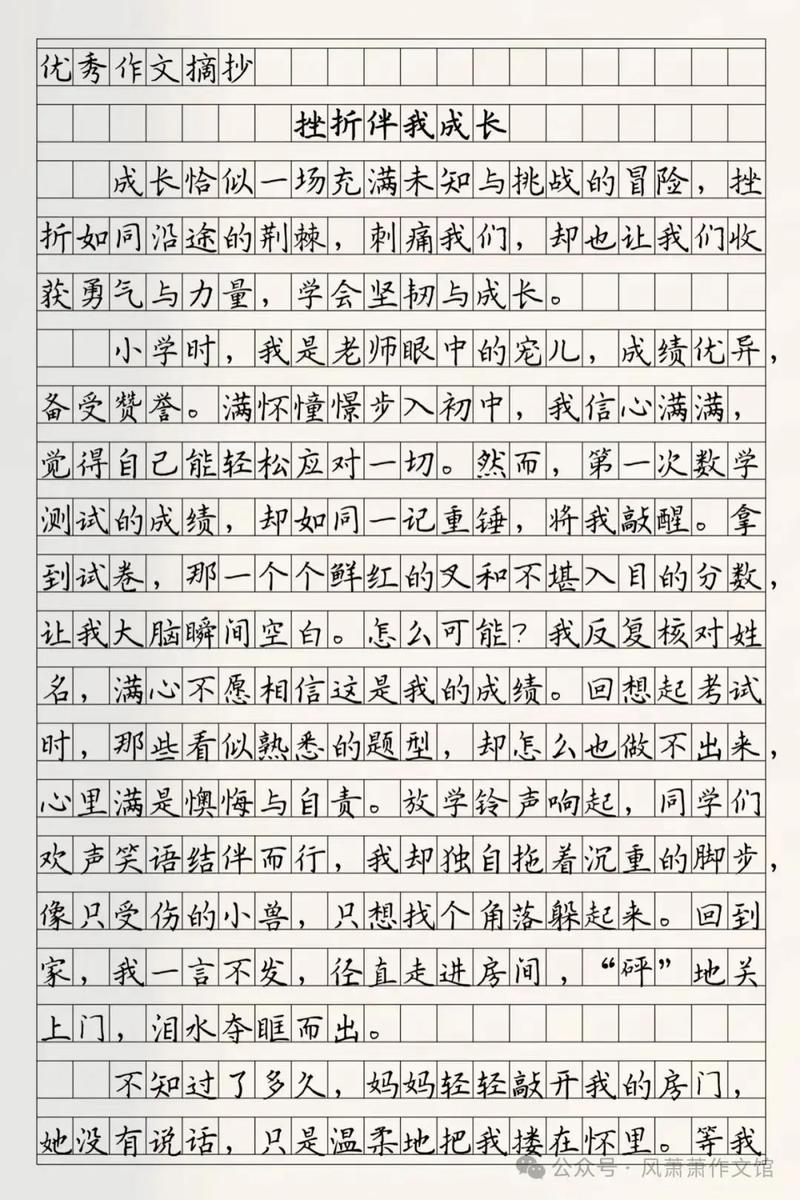 优秀作文摘抄
挫折伴我成长
成长恰似一场充满未知与挑战的冒险，挫
折如同沿途的荆棘，刺痛我们，却也让我们收
获勇气与力量，学会坚韧与成长。
小学时，我是老师眼中的宠儿，成绩优异，
备受赞誉。满怀憧憬步入初中，我信心满满，
觉得自己能轻松应对一切。然而，第一次数学
测试的成绩，却如同一记重锤，将我敲醒。拿
到试卷，那一个个鲜红的叉和不堪入目的分数，
让我大脑瞬间空白。怎么可能？我反复核对姓
名，满心不愿相信这是我的成绩。回想起考试
时，那些看似熟悉的题型，却怎么也做不出来，
心里满是懊悔与自责。放学铃声响起，同学们
欢声笑语结伴而行，我却独自拖着沉重的脚步，
像只受伤的小兽，只想找个角落躲起来。回到
家，我一言不发，径直走进房间，“砰”地关
上门，泪水夺眶而出。
不知过了多久，妈妈轻轻敲开我的房门，
她没有说话，只是温柔地把我搂在怀里。等我
公众号·风萧萧作文馆